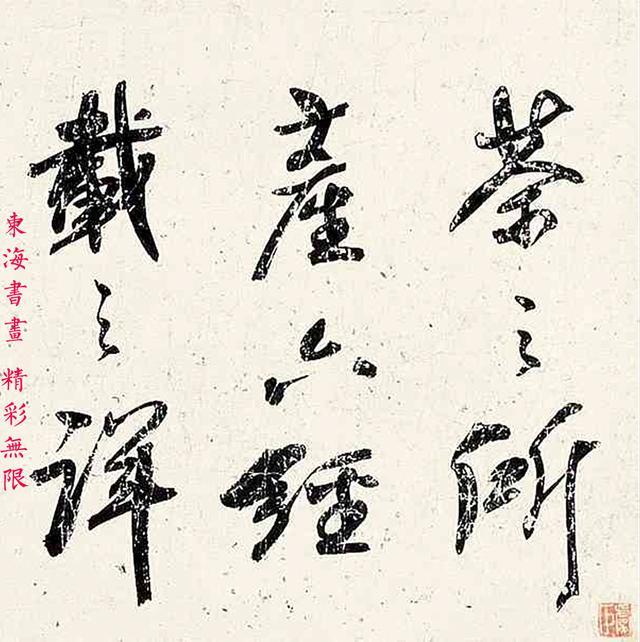 茶之所
產六經
載之詳
東海書畫 精彩無限